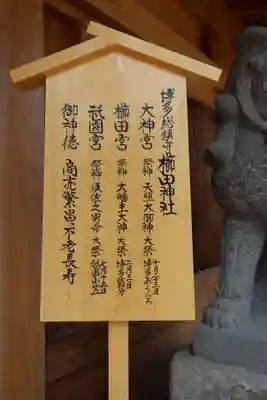 博多総鎮守 櫛田神社
大神宮 祭神 天照大御神 大祭 十月二十三日 博多おくんち
櫛田宮 祭神 大幡主大神 大祭 二月三日 博多節分
祇園宮 祭神 須佐之男命 大祭 七月十五日 祇園山笠
御神徳 商売繁昌 不老長寿